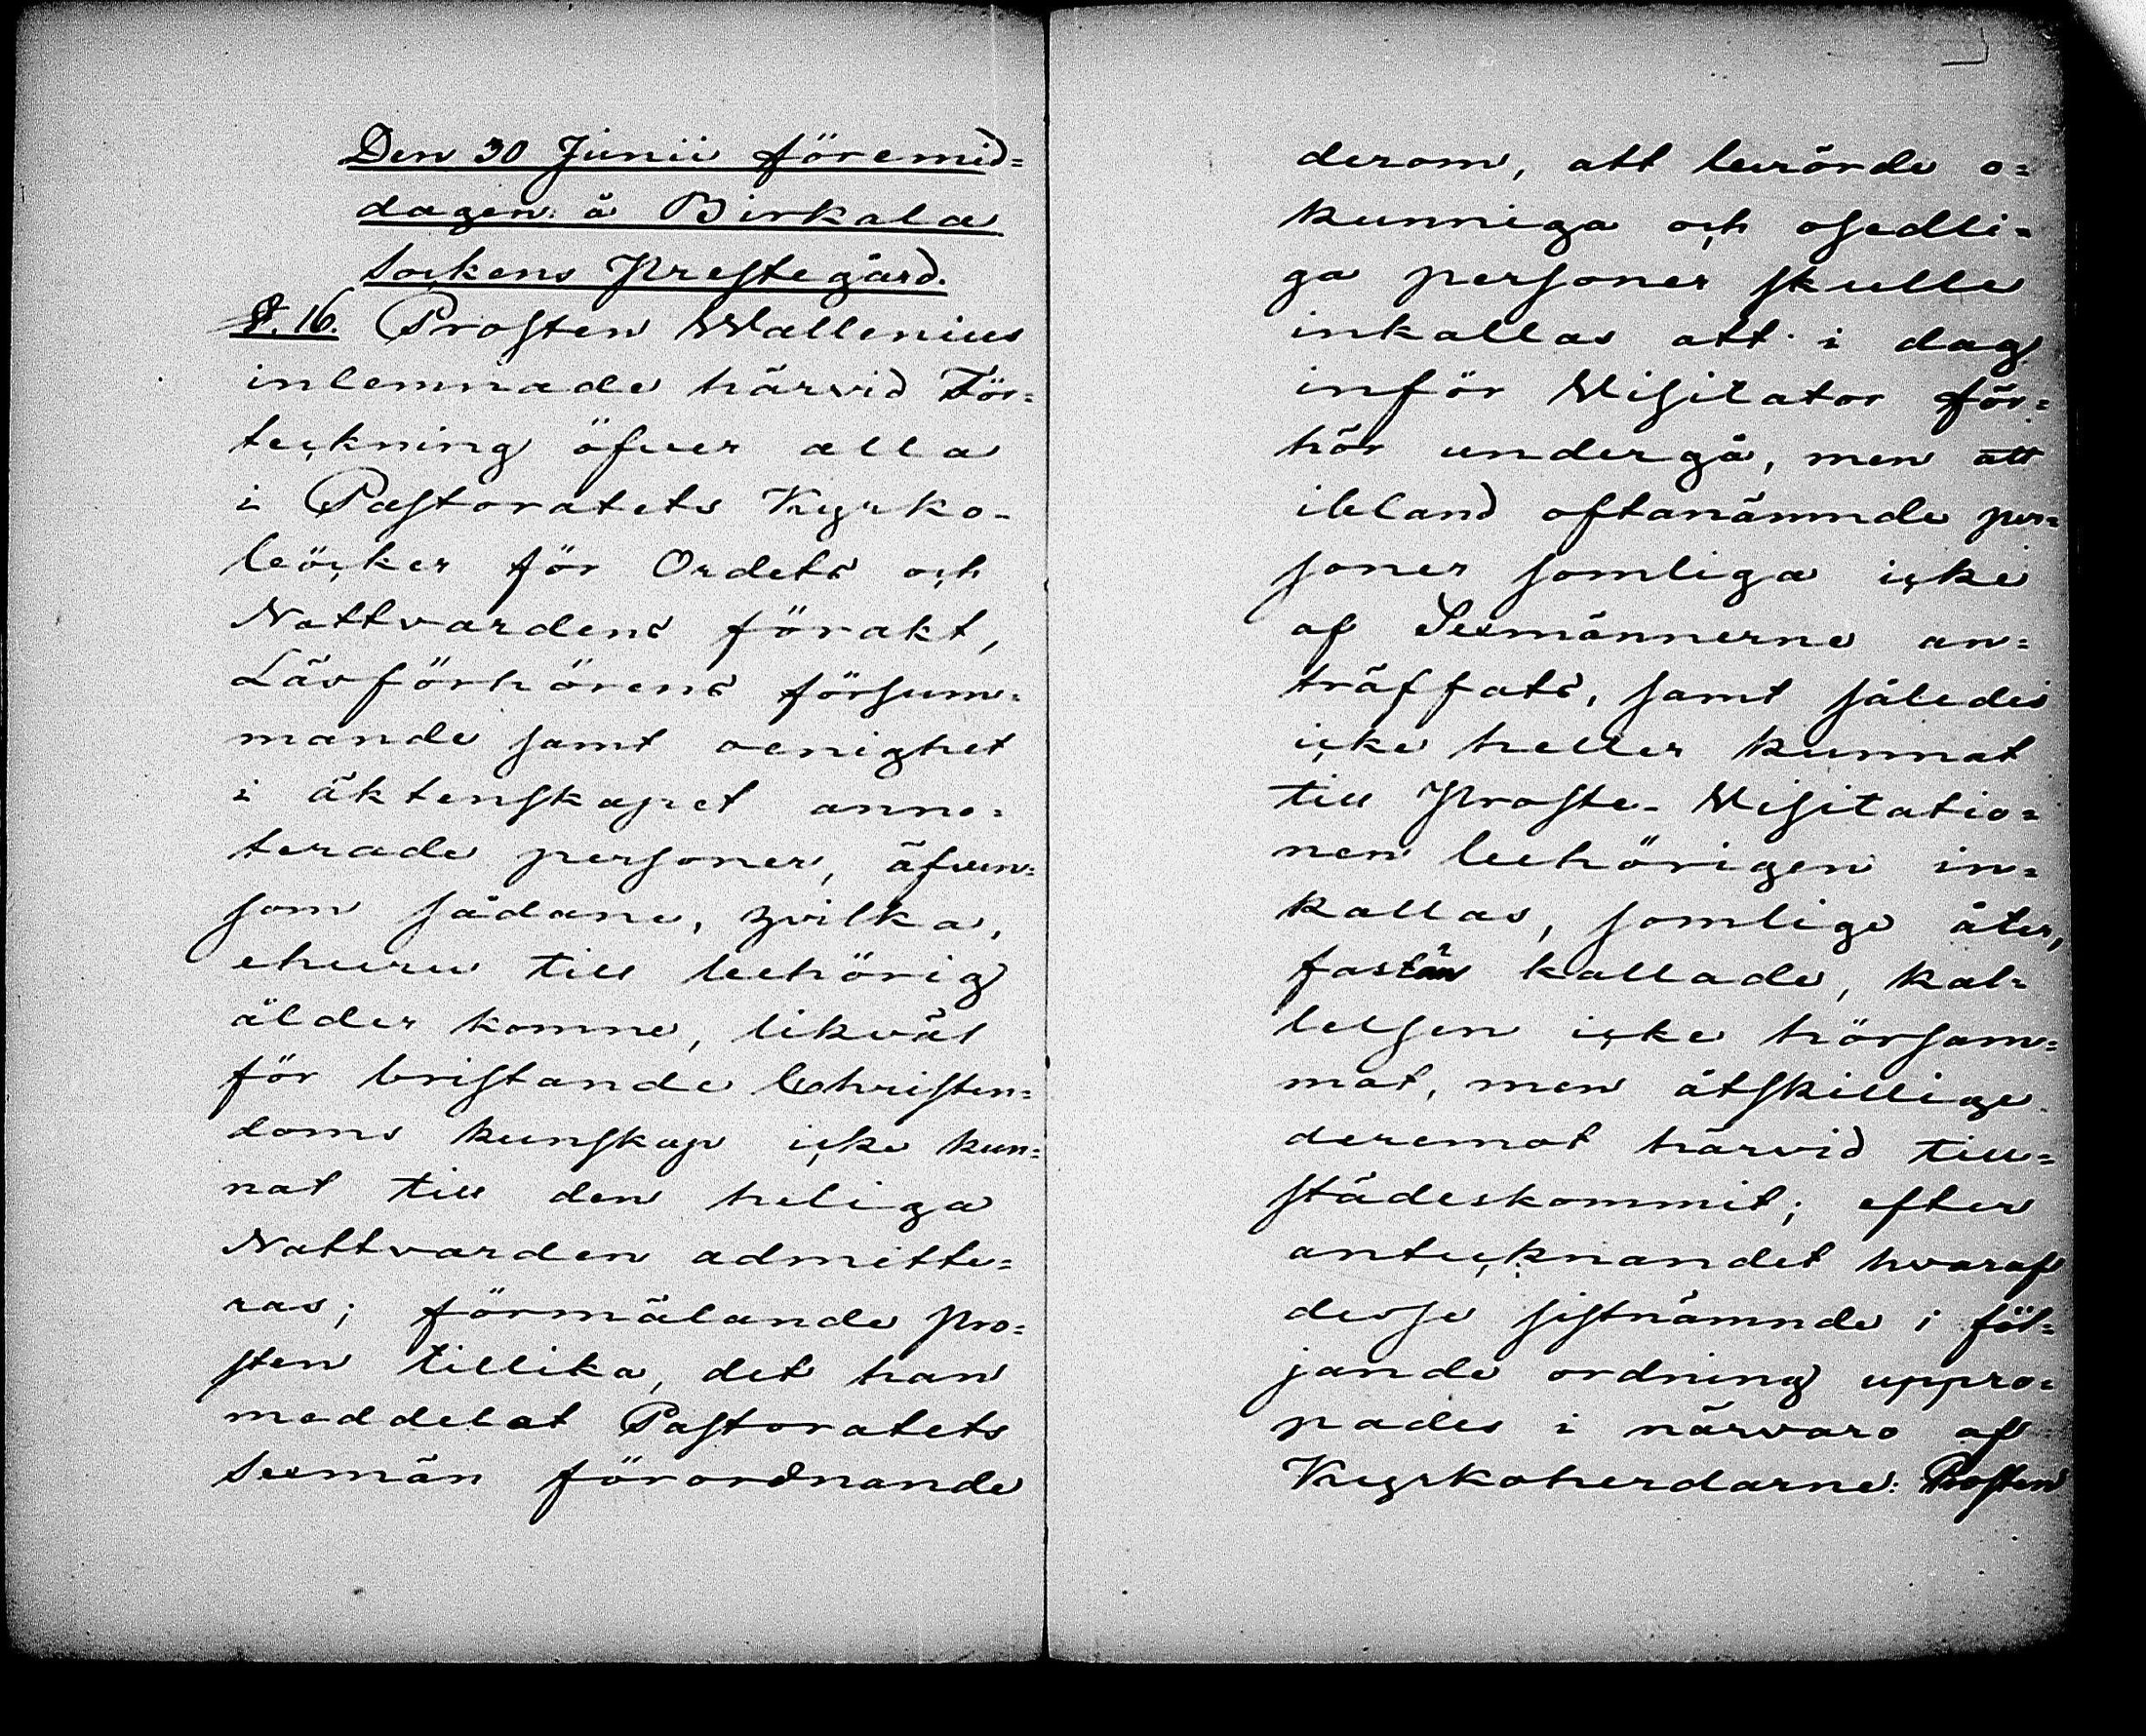 Den 30 Junii föremid=
dagen å Birkala
Sockens Prestegård.
§. 16. Prosten Wallenius
inlemnade härvid För=
teckning öfver alla
i Pastoratets Kyrko-
böcker för Ordets och
Nattvardens förakt,
Läsförhörens försum=
mande samt oenighet
i äktenskapet anno=
terade personer, äfven=
som sådane, hvilka,
ehuru till behörig
ålder komne, likväl
för bristande Christen=
doms kunskap icke kun=
nat till den heliga
Nattvarden admitte=
ras; förmälande Pro=
sten tillika, det han
meddelat Pastoratets
Sexmän förordnande
derom, att berörde o=
kunniga och osedli=
ga personer skulle
inkallas att i dag
inför Visitator för=
hör undergå, men att
ibland oftanämnde per=
soner somliga icke
af Sexmännerne an=
träffats, samt således
icke heller kunnat
till Proste-Visitatio=
nen behörigen in=
kallas, somlige åter,
fastän kallade, kal=
lelsen icke hörsam=
mat, men åtskillige
deremot härvid till=
städeskommit; efter
antecknandet hvaraf
desse sistnämnde i föl=
jande ordning uppro=
pades i närvaro af
Kyrkoherdarne: Prosten